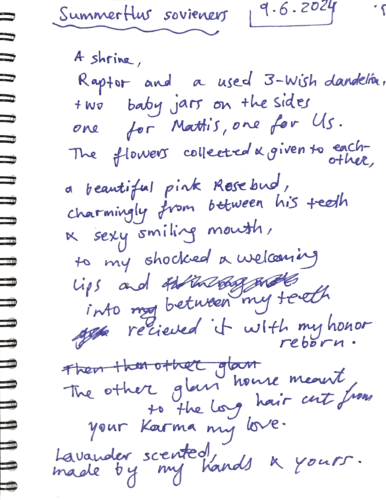 SummerHus sovieners
9.6.2024
A shrine,
Raptor and a used 3-Wish dandelion,
two baby jars on the sides
one for Mattis, one for Us.
The flowers collected & given to each-
other,
a beautiful pink Rosebud,
charmingly from between his teeth
& sexy smiling mouth,
to my shocked & welcoming
lips and
into my between my teeth
recieved it with my honor
reborn.
Then then other glam
The other glam house meant
to the long hair cut from
your Karma my love.
Lavander scented,
made by my hands & yours.